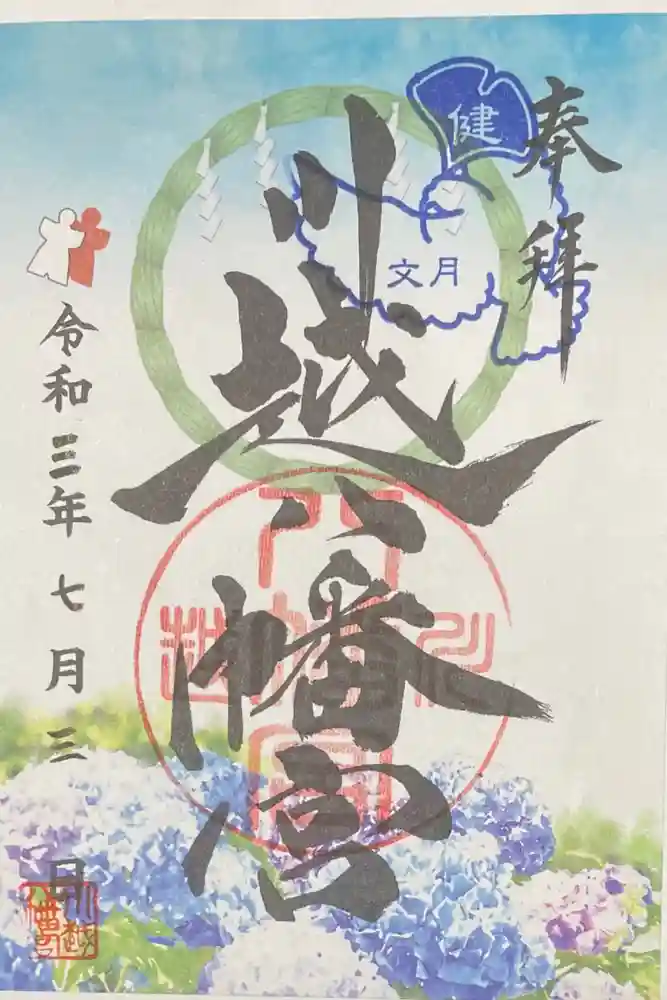 奉拝
健
文月
川越八幡宮
令和三年七月三日